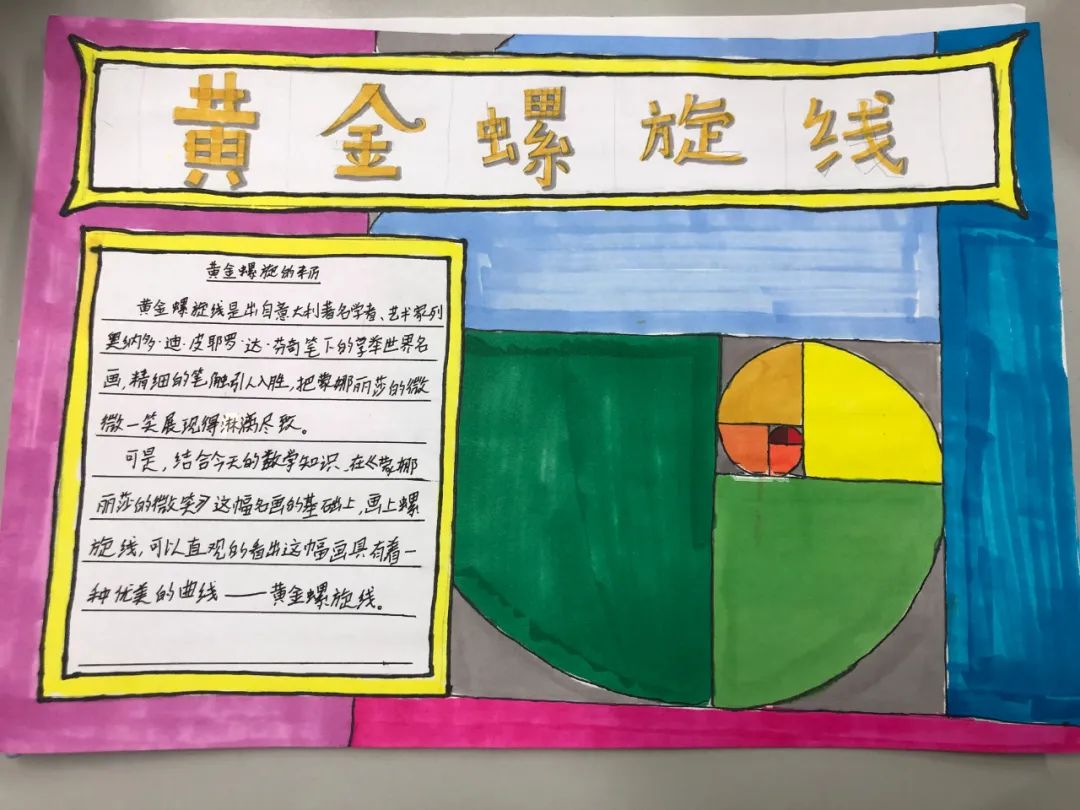 黄金螺旋线
黄金螺旋的来历
黄金螺旋线是出自意大利著名学者、艺术家列
奥纳多·迪·皮耶罗·达·芬奇笔下的举世界名
画，精细的笔触引人入胜，把蒙娜丽莎的微
微一笑展现得淋漓尽致。
可是，结合今天的数学知识，在《蒙娜
丽莎的微笑》这幅名画的基础上，画上螺
旋线，可以直观的看出这幅画具有着一
种优美的曲线——黄金螺旋线。